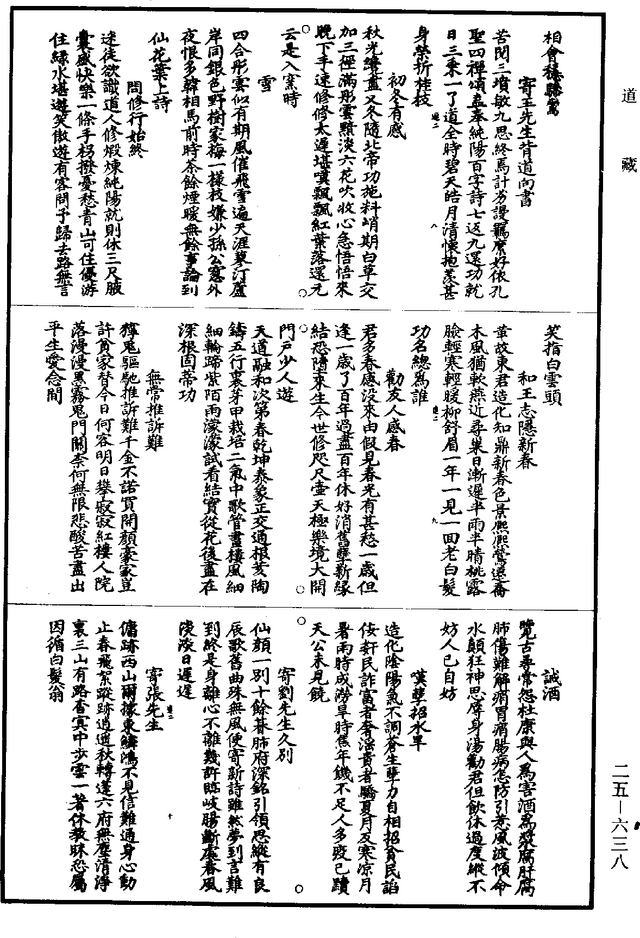 道藏
相會驂鸞
寄王先生背道向書
苦閱三墳敏九思終焉計劣謾羈縻好依孔
聖四禪頌盡奉純陽百字詩七返九還功就
日三乘一了道全時碧天皓月清懷抱羨甚
身榮折桂枝
初冬有感
秋光纔盡又冬隨北帝功施料峭期白草交
加三徑滿彤雲黯淡六花吹收心急悟悟來
晚下手速修修太遲堪嘆飄飄紅葉落還元
云是入室時
雪
四合彤雲似有期風催飛雪遍天涯蓼汀蘆
岸同銀色野樹家梅一樣枝嫌少孫公窓外
夜恨多韓相馬前時茶餘煙暖無餘事論到
仙花葉上詩
問修行始終
迷徒欲識道人修煅煉純陽就則休三尺腋
囊盛快樂一條手柺撥憂愁青山可住優游
住綠水堪遊笑傲遊有客問予歸去路無言
笑指白雲頭
和王志隱新春
華故東君造化知鼎新春色景熙熙鶯遷喬
木風猶軟燕近尋巢日漸遲半雨半晴桃露
臉輕寒輕暖柳舒眉一年一見一回老白髮
功名總爲誰
勸友人感春
君多春感沒來由假見春光有甚愁一歲但
逢一歲了百年過盡百年休好消舊孽新緣
結恐隨來生今世修咫尺壺天極樂境大開
門戶少人遊
天道融和次第春乾坤泰象正交通根荄陶
鑄五行裏芽甲栽培二氣中歌管畫樓風細
細輪蹄紫陌雨濛濛試看結實從花後盡在
深根固蒂功
無常推訴難
獐鬼驅馳推訴難千金不諾買開顏豪家豈
許貧家替今日何容明日攀寂寂紅樓人院
落漫漫黑霧鬼門關柰何無限悲酸苦盡出
平生愛念間
誡酒
覽古尋常怨杜康與人爲害酒爲漿腐肝腐
肺傷難解痛胃痛腸病怎防引惹風波傾命
水顛狂神思喪身湯勸君但飲休過度縱不
妨人已自妨
嘆孽招水旱
造化陰陽氣不調蒼生孽力自相招貧民諂
佞奸民詐富者奢淫貴者驕夏月反寒涼月
暑雨時成澇旱時焦年饑不足人多疫已贖
天公未見饒
寄劉先生久別
仙顏一別十餘朞肺府深銘引領思縱有良
辰歌舊曲殊無風便寄新詩雖然夢到言難
到終是身離心不離幾許臨岐腸斷處春風
淡淡日遲遲
寄張先生
傭跡西山爾據東鱗鴻不見信難通身心動
止春飛絮蹤跡逍遙秋轉蓬六府無塵清淨
裏三山有路杳冥中步雲一著休教昧恐屬
因循白髮翁
二五—六三八